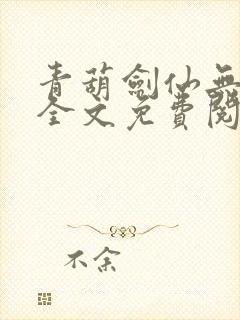 青葫劍仙無
全文免費閱
不余